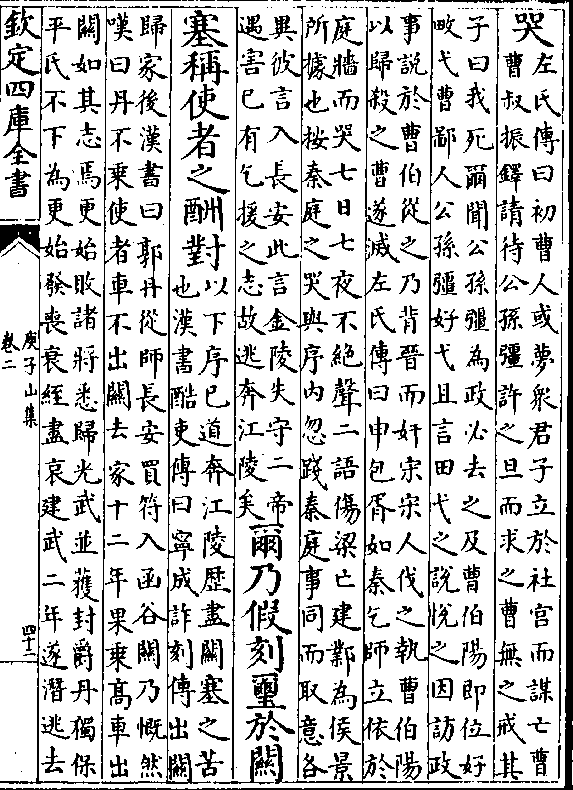 哭
左氏傳曰初曹人或夢衆君子立於社宮而謀亡曹
曹叔振鐸請待公孫彊許之旦而求之曹無之戒其
子曰我死爾聞公孫彊為政必去之及曹伯陽即位好
畋弋曹鄙人公孫彊好弋且言田弋之說悅之因訪政
事說於曹伯從之乃背晉而奸宋宋人伐之執曹伯陽
以歸殺之曹遂滅左氏傳曰申包胥如秦乞師立依於
庭牆而哭七日七夜不絕聲二語傷梁亡建鄴為侯景
所據也按秦庭之哭與序内忽踐秦庭事同而取意各
異彼言入長安此言金陵失守二帝
遇害已有乞援之志故逃奔江陵矣
爾乃假刻璽於關
塞稱使者之酬對
以下序已道奔江陵歴盡關塞之苦
也漢書酷吏傳曰寧成詐刻傳出關
歸家後漢書曰郭丹從師長安買符入函谷關乃慨然
嘆曰丹不乗使者車不出關去家十二年果乗髙車出
關如其志焉更始敗諸將悉歸光武並獲封爵丹獨保
平氏不下為更始發喪衰絰盡哀建武二年遂潛逃去
欽定四庫全書
庾子山集
卷二
四十二